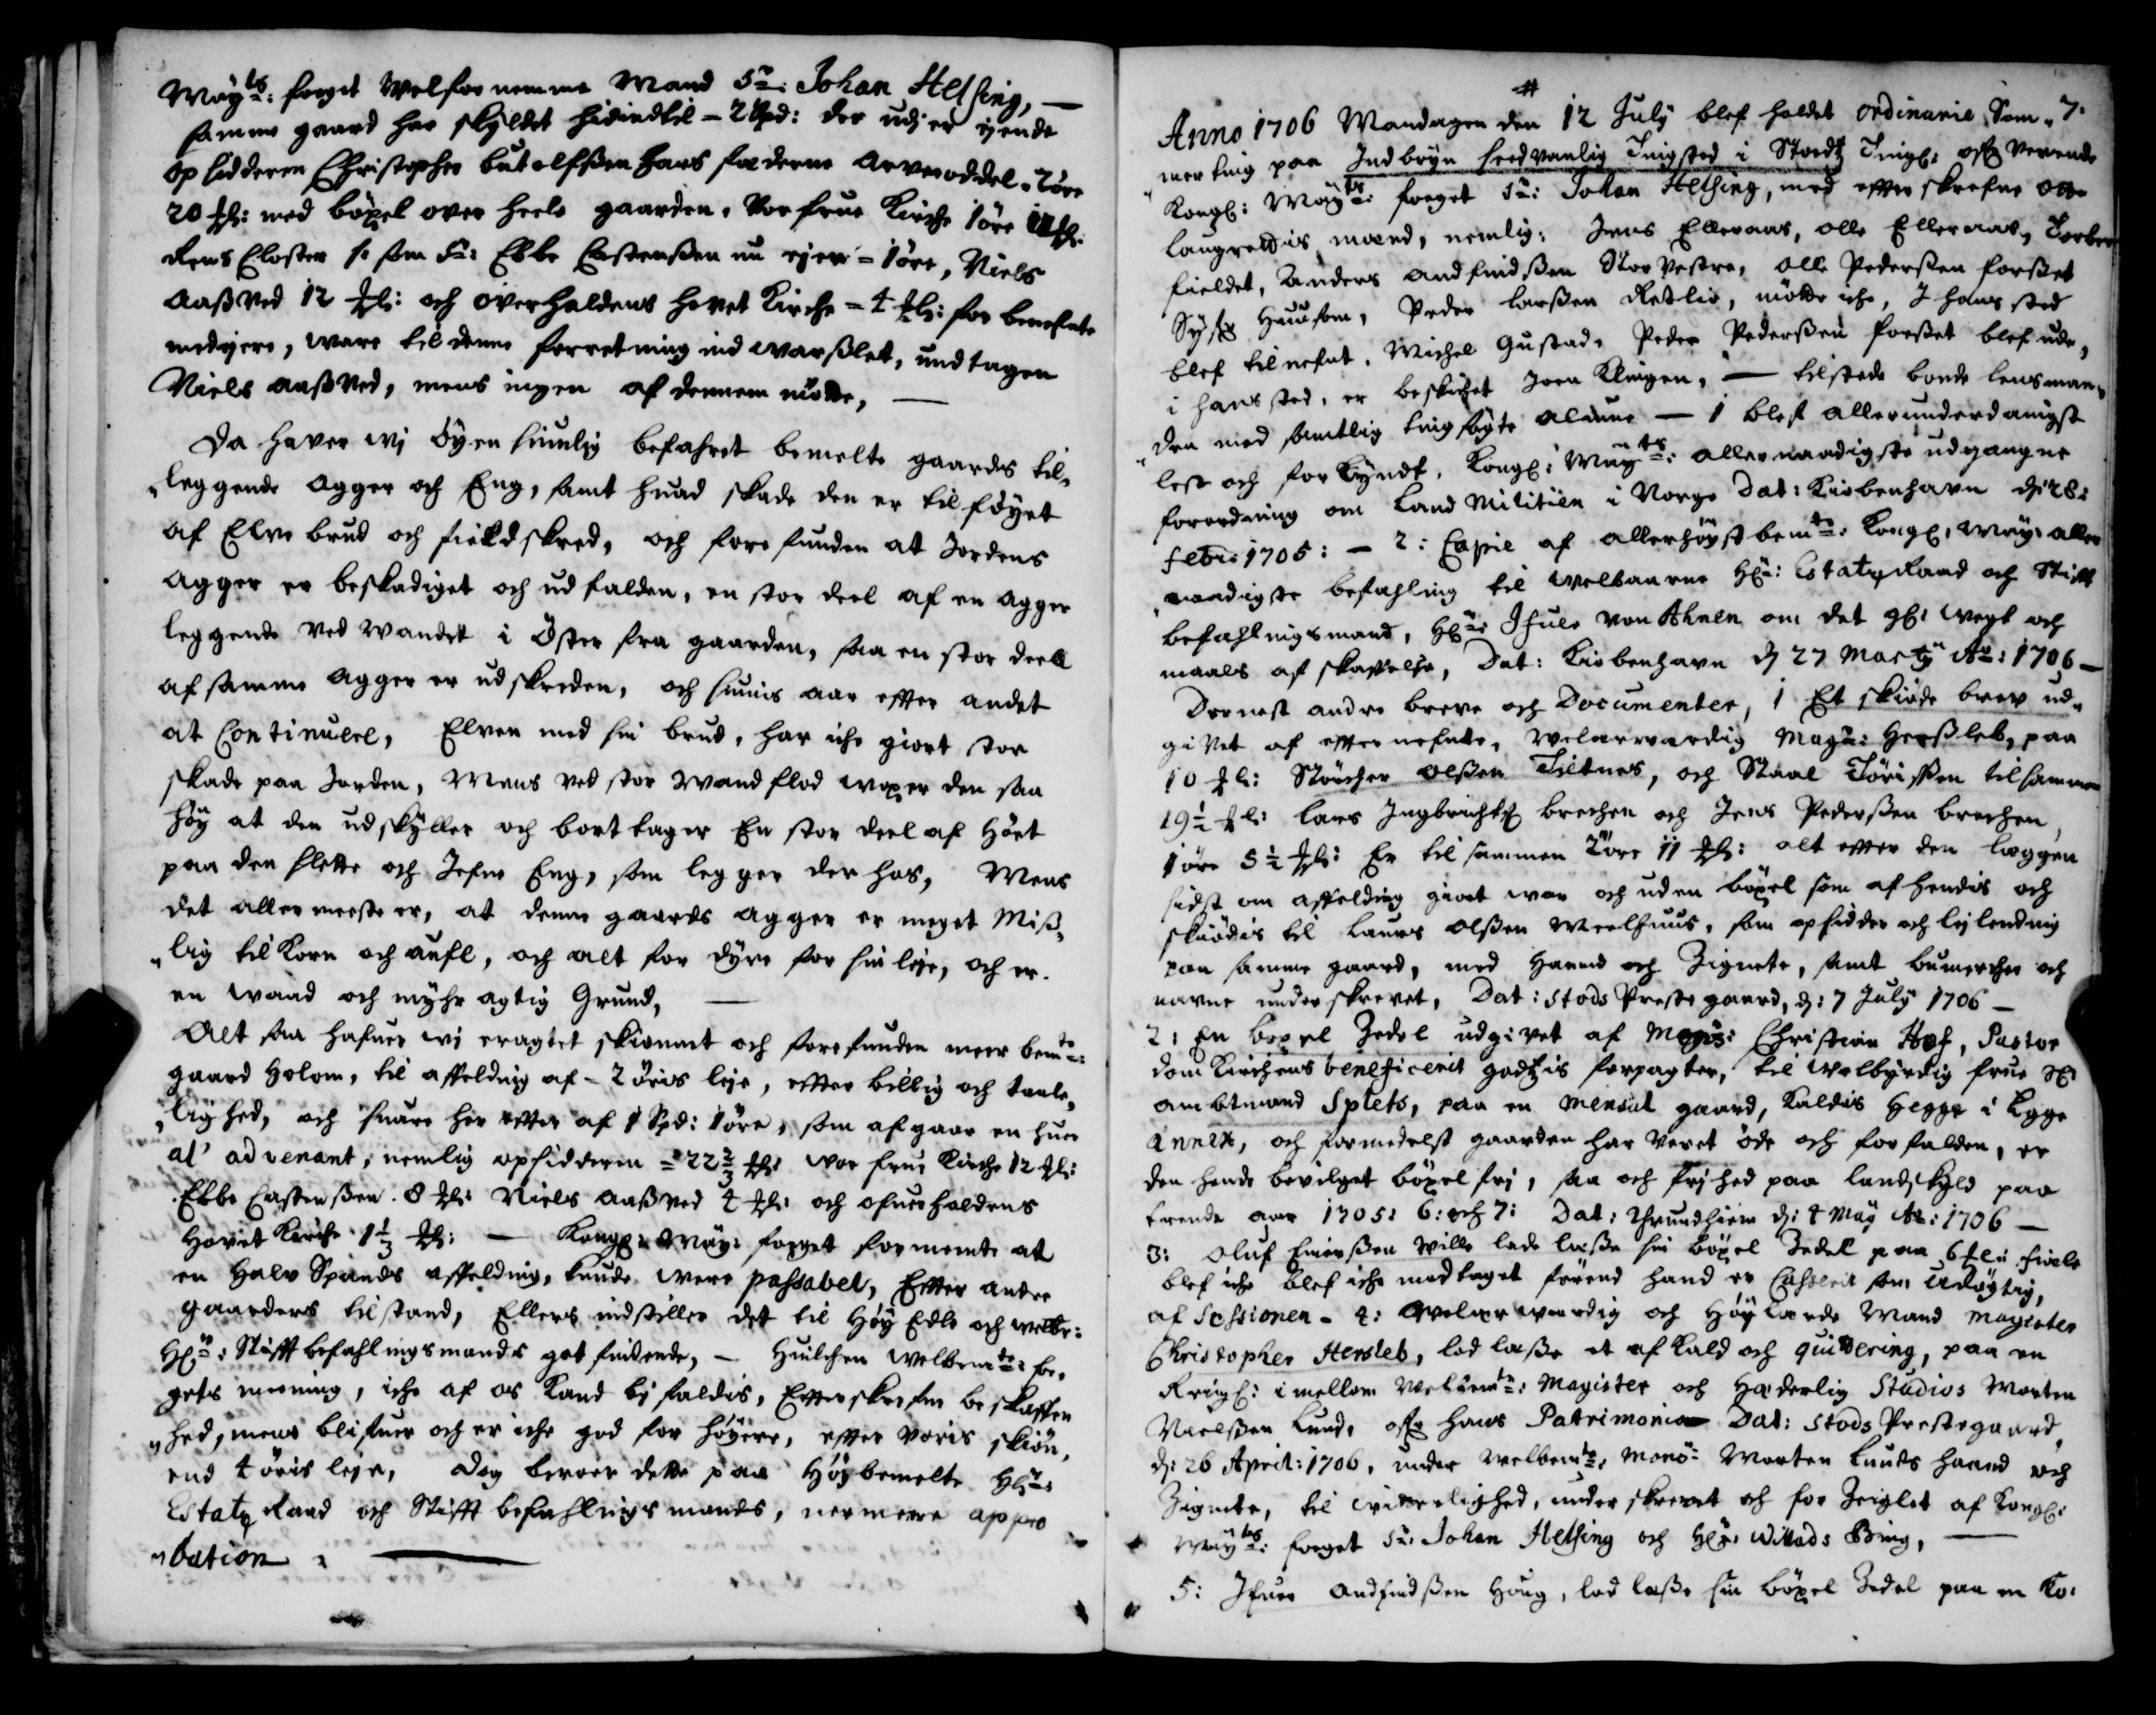 Mayts: foget Welfornemme Mand Sr: Johan Helsing, —
samme gaard har skyldet hidindtil - 2 Spd: der udj er ejende
opsidderen Christopher Butolfsen hans faderne arveoddel - 2 øre
20 ℔: med böxel over heele gaarden, Vor frue Kirche 1 øre
Reins Closter so som Sr: Ebbe Carstensen nu ejer - 1 öre, Niels
Aasved 12 ℔: och overhaldens hovet Kirche - 4 ℔: for benefnte
medejere, ware til denne forretning ind warslet, undtagen
Niels Aasved, mens ingen af dennem mötte, —
Da haver wj Öyensiunlig befahret bemelte gaards til-
leggende Agger och Eng, samt huad skade den er tilföyet
af Elve brud och fieldskred, och forefunden at Jordens
Agger er beskadiget och udfalden, en stor deel af en Agger
leggende ved Wandet i Öster fra gaarden, saa en stor deell
af samme Agger er udskreden, och siunis aar effter andet
at Continuere, Elven med sin brud, har iche giort stor
skade paa Jorden, Mens ved stor Wandflod woxer den saa
høy at den udskyller och borttager En stor deel af Höet
paa den slette och Jefne Eng, som legger der hos, Mens
det aller meeste er, at denne gaards Agger er meget Miss-
lig til Korn och aufl, och alt for dyre for sin leje, och er
en waad och myhragtig Grund, —
Alt saa hafuer wj eragtet skiönnet och forefunden meer bemte:
gaard Holom, til affelding af - 2 öris leje, effter billig och taale-
lighed, och suare her effter af 1 Spd: 1 öre, som afgaar en huer
al' advenant, nemlig opsidderen = 22 2/3 ℔: vor frue Kirche 12 ℔:
Ebbe Carstensen 8 ℔: Niels Aasved 4 ℔: och ofuerhaldens
Hovet Kirche 1 1/3 ℔: — Kongl: May: foget formente at
en Halv Spands affelding, kunde were passabel, Effter andre
gaarders tilstand, Ellers indstiller det til Høy Edle och welbr:
Hr: Stifftbefahlingsmands got findende, — Huilchen welbemte: fo-
gets meening, iche af os kand bifaldis, Effterskrefne beskaffen
hed, mens blifuer och er iche god for høyere, effter voris skiön,
end 4 öris leje, dog beroer dette paa Høybemelte Hr:
Estatz Raad och Stifftbefahlingsmands, nermeere appro
bation —
Anno 1706 Mandagen den 12 July blef holdet ordinarie Som-
merting paa Jndbryn sædvanlig Tingsted i Stodtz Tingl: offververende
Kongl: Mayts: foget Sr: Johan Helsing, med effterskrefne otte
laugrettis mænd, nemlig: Jens Elleraas, olle Elleraas,
fieldet, Anders Andfindsen Storvestre, olle Pedersen forset
Haudsom, Peder Larsen Retlie, mötte iche, J hans sted
blef tilnefnt, Michel Gustad, Peder Pedersen Forset blef ude,
i hans sted, er beskichet Joen Klingen, — tilstede bonde lensman-
den med samtlig tingsögte Almue — 1 blef allerunderdanigst
lest och forkyndt, Kongl: Mayts: allernaadigste udgangne
forordning om Land Militien i Norge Dat: Kiøbenhavn d: 28:
febr: 1705: - 2: Copie af allerhöystbemte: Kongl: May: aller
naadigste befahling til Welbaarne Hr: Estatz Raad och Stifft
befahlingsmand, Hr: Jfuer von Ahnen om det gl: wegt och
maals afskaffelse, Dat: Kiøbenhavn d 27 Marty Ao: 1706 -
Dernest andre breve och Documenter, 1 Et skiøde brev ud-
givet af effternefnte, Welærværdig Magr: Hersleb, paa
10 ℔: Stöucher olsen Tiltnes, och Staal Törissen tilsammen
19 1/2 ℔: Lars Jngbrichts brechen och Jens Pedersen brechen
1 öre 5 1/2 ℔: Er tilsammen 2 öre 11 ℔: alt effter den læggen
sidst om affelding giort war och uden böxel som afhendis och
skiödis til Laurs olsen Weelhuus, som opsidder och lejlending
paa samme gaard, med Haand och Zignete, samt bumercher och
navne underskrevet, Dat: Stods Prestegaard, d: 7 July 1706 -
2: En böxel Zedel udgivet af Magr: Christian Hof, Pastor
dom Kirchens beneficerit godtzis forpagter, til welbyrdig frue Sl:
ambtmand Splets, paa en Mensal gaard, kaldis Hegge i Egge
Annex, och formedelst gaarden har veret öde och forfalden, er
den hende bevilget böxel frj, saa och frjhed paa landskyld paa
trende aar 1705: 6: och 7: Dat: Thrundhiem d: 4 May Ao: 1706 —
3: Oluf Einersen wille lade læse sin böxel Zedel paa 6 ℔:
blef iche blef iche modtaget førend hand er Casserit som Udøgtig,
af Sessionen - 4: Welærwærdig och Høylærde Mand Magister
Christopher Hersleb, lod læse et afkald och quittering, paa en
imellem Welbemte: Magister och Hæderlig Studios Morten
Nielsen Lund, offr hans Patrimonio Dat: Stods Prestegaard,
d: 26 April: 1706, under Welbemte: Monsr: Morten Lunds haand och
Zignete, til vitterlighed, underskrevet och forZeiglet af Kongl:
Mayts: foget Sr: Johan Helsing och Hr: Willads Bing, —
5: Jfuer Andfindsen Houg, lod læse sin böxel Zedel paa en Ko: